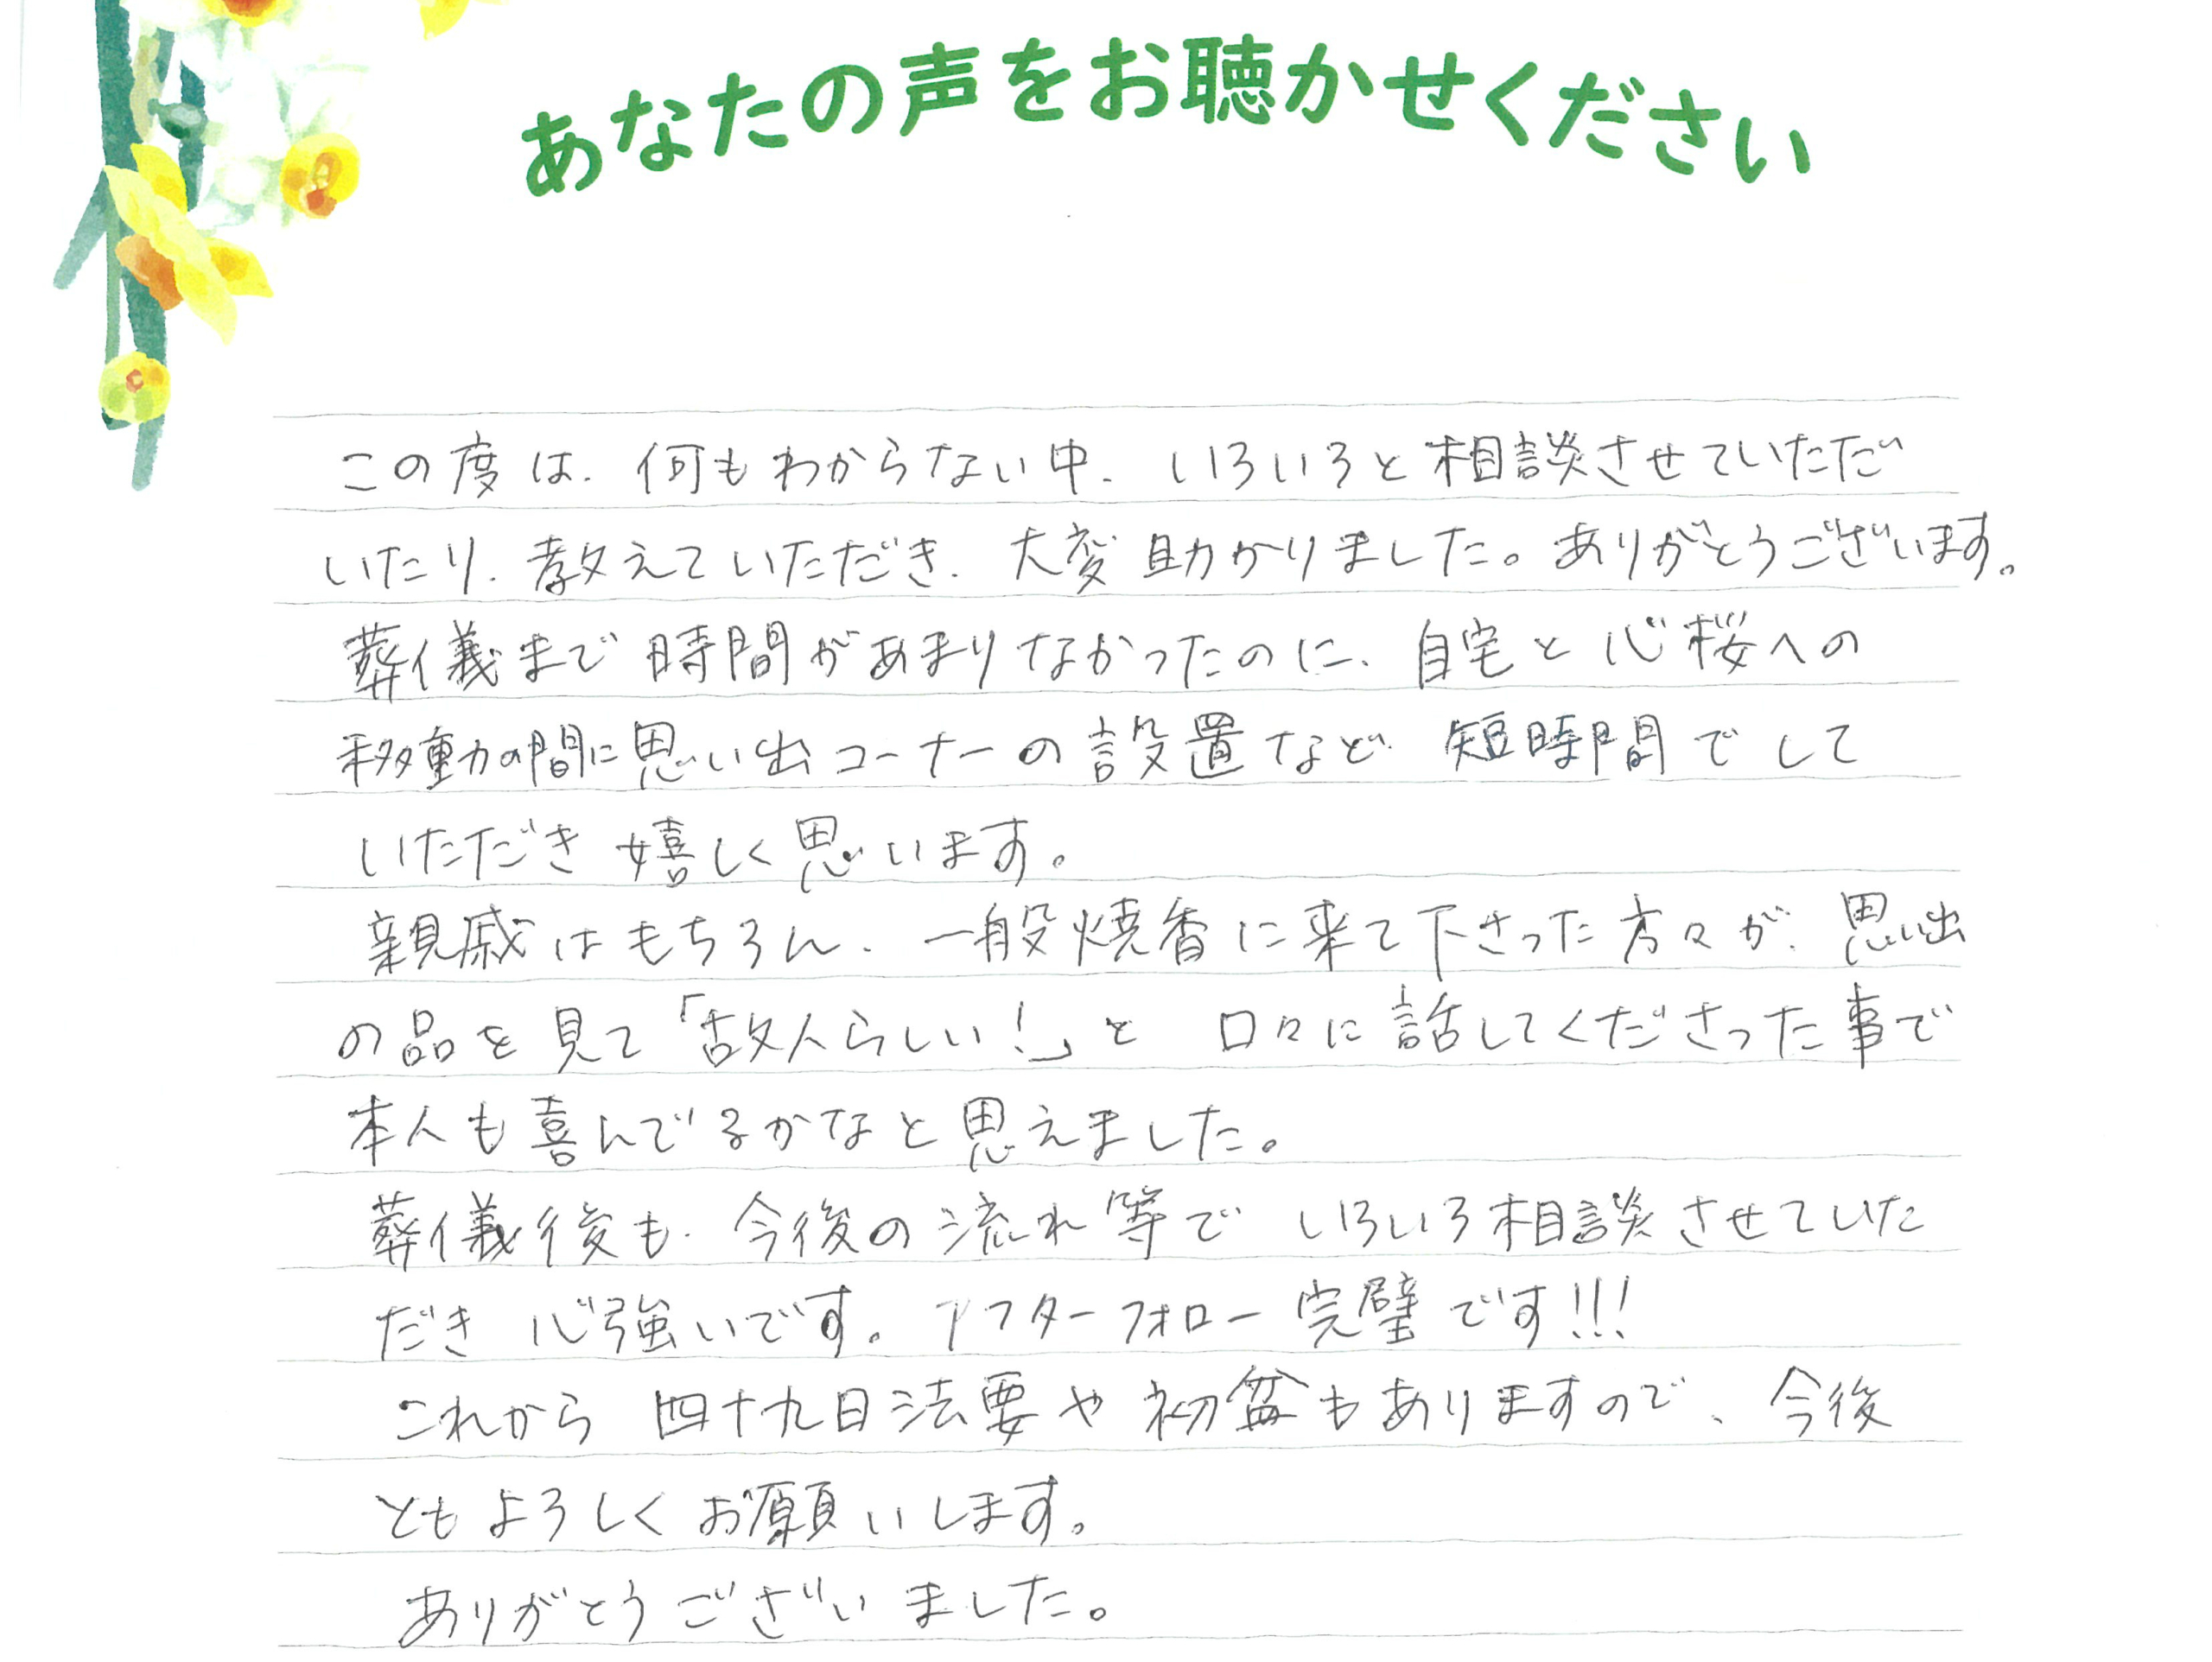 あなたの声をお聴かせください
この度は、何もわからない中、いろいろと相談させていただ
いたり、教えていただき、大変助かりました。ありがとうございます。
葬儀まで時間があまりなかったのに、自宅と心桜への
移動の間に思い出コーナーの設置など、短時間でして
いただき嬉しく思います。
親戚はもちろん、一般焼香に来て下さった方々が、思い出
の品を見て「故人らしい!」と口々に話してくださった事で
本人も喜んでるかなと思えました。
葬儀後も、今後の流れ等でいろいろ相談させていた
だき心強いです。アフターフォロー完璧です!!!
これから四十九日法要や初盆もありますので、今後
ともよろしくお願いします。
ありがとうございました。